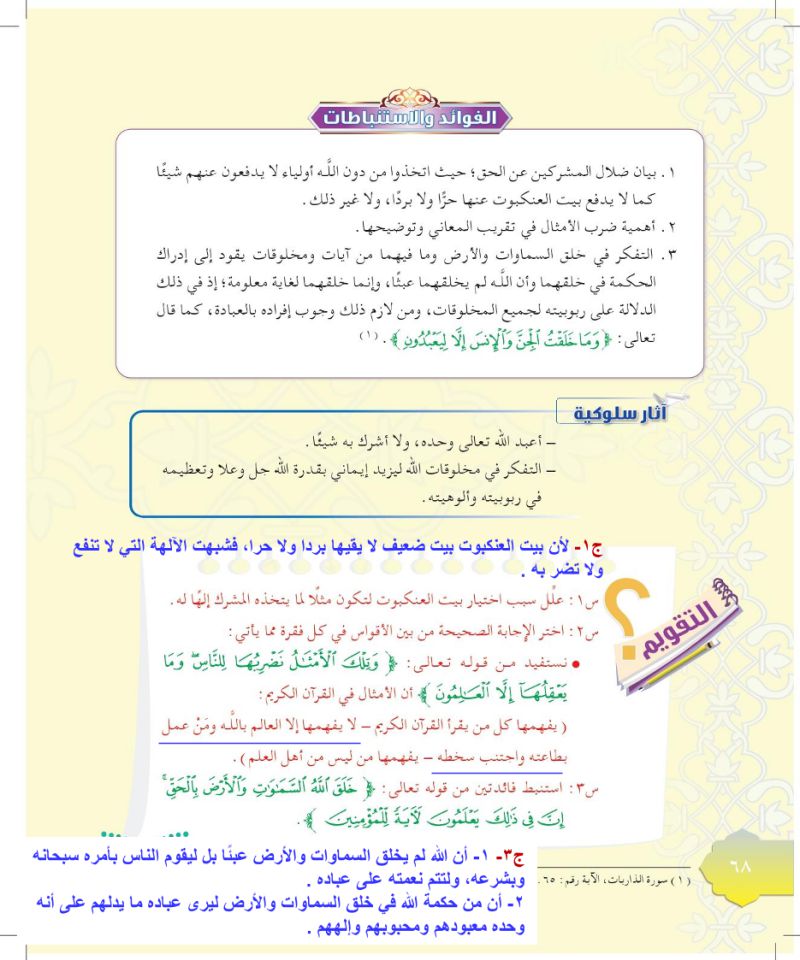 الفوائد والاستنباطات
١. بيان ضلال المشركين عن الحق؛ حيث اتخذوا من دون اللَّه أولياء لا يدفعون عنهم شيئًا
كما لا يدفع بيت العنكبوت عنها حرًّا ولا بردًا، ولا غير ذلك.
٢. أهمية ضرب الأمثال في تقريب المعاني وتوضيحها.
٣. التفكر في خلق السماوات والأرض وما فيهما من آيات ومخلوقات يقود إلى إدراك
الحكمة في خلقهما وأن اللَّه لم يخلقهما عبثًا، وإنما خلقهما لغاية معلومة؛ إذ في ذلك
الدلالة على ربوبيته لجميع المخلوقات، ومن لازم ذلك وجوب إفراده بالعبادة، كما قال
تعالى: ﴿ وَمَا خَلَقْتُ ٱلْجِنَّ وَٱلْإِنسَ إِلَّا لِيَعْبُدُونِ ﴾. (١)
آثار سلوكية
– أعبد الله تعالى وحده، ولا أشرك به شيئًا.
– التفكر في مخلوقات الله ليزيد إيماني بقدرة الله جل وعلا وتعظيمه
في ربوبيته وألوهيته.
ج١- لأن بيت العنكبوت بيت ضعيف لا يقيها بردا ولا حرا، فشبهت الآلهة التي لا تنفع
ولا تضر به .
التقويم
؟
س١: علّل سبب اختيار بيت العنكبوت لتكون مثلًا لما يتخذه المشرك إلهًا له.
س٢: اختر الإجابة الصحيحة من بين الأقواس في كل فقرة مما يأتي:
● نستفيد من قوله تعالى: ﴿ وَتِلْكَ ٱلْأَمْثَٰلُ نَضْرِبُهَا لِلنَّاسِ وَمَا
يَعْقِلُهَآ إِلَّا ٱلْعَٰلِمُونَ ﴾ أن الأمثال في القرآن الكريم:
( يفهمها كل من يقرأ القرآن الكريم – لا يفهمها إلا العالم باللَّه ومَنْ عمل
بطاعته واجتنب سخطه – يفهمها من ليس من أهل العلم ).
س٣: استنبط فائدتين من قوله تعالى: ﴿ خَلَقَ ٱللَّهُ ٱلسَّمَٰوَٰتِ وَٱلْأَرْضَ بِٱلْحَقِّ ۚ
إِنَّ فِى ذَٰلِكَ يَعْلَمُونَ لَءَايَةً لِّلْمُؤْمِنِينَ ﴾.
ج٣- ١- أن الله لم يخلق السماوات والأرض عبثًا بل ليقوم الناس بأمره سبحانه
وبشرعه، ولتتم نعمته على عباده .
٢- أن من حكمة الله في خلق السماوات والأرض ليرى عباده ما يدلهم على أنه
وحده معبودهم ومحبوبهم وإلههم .
(١) سورة الذاريات، الآية رقم: ٦٥.
٦٨